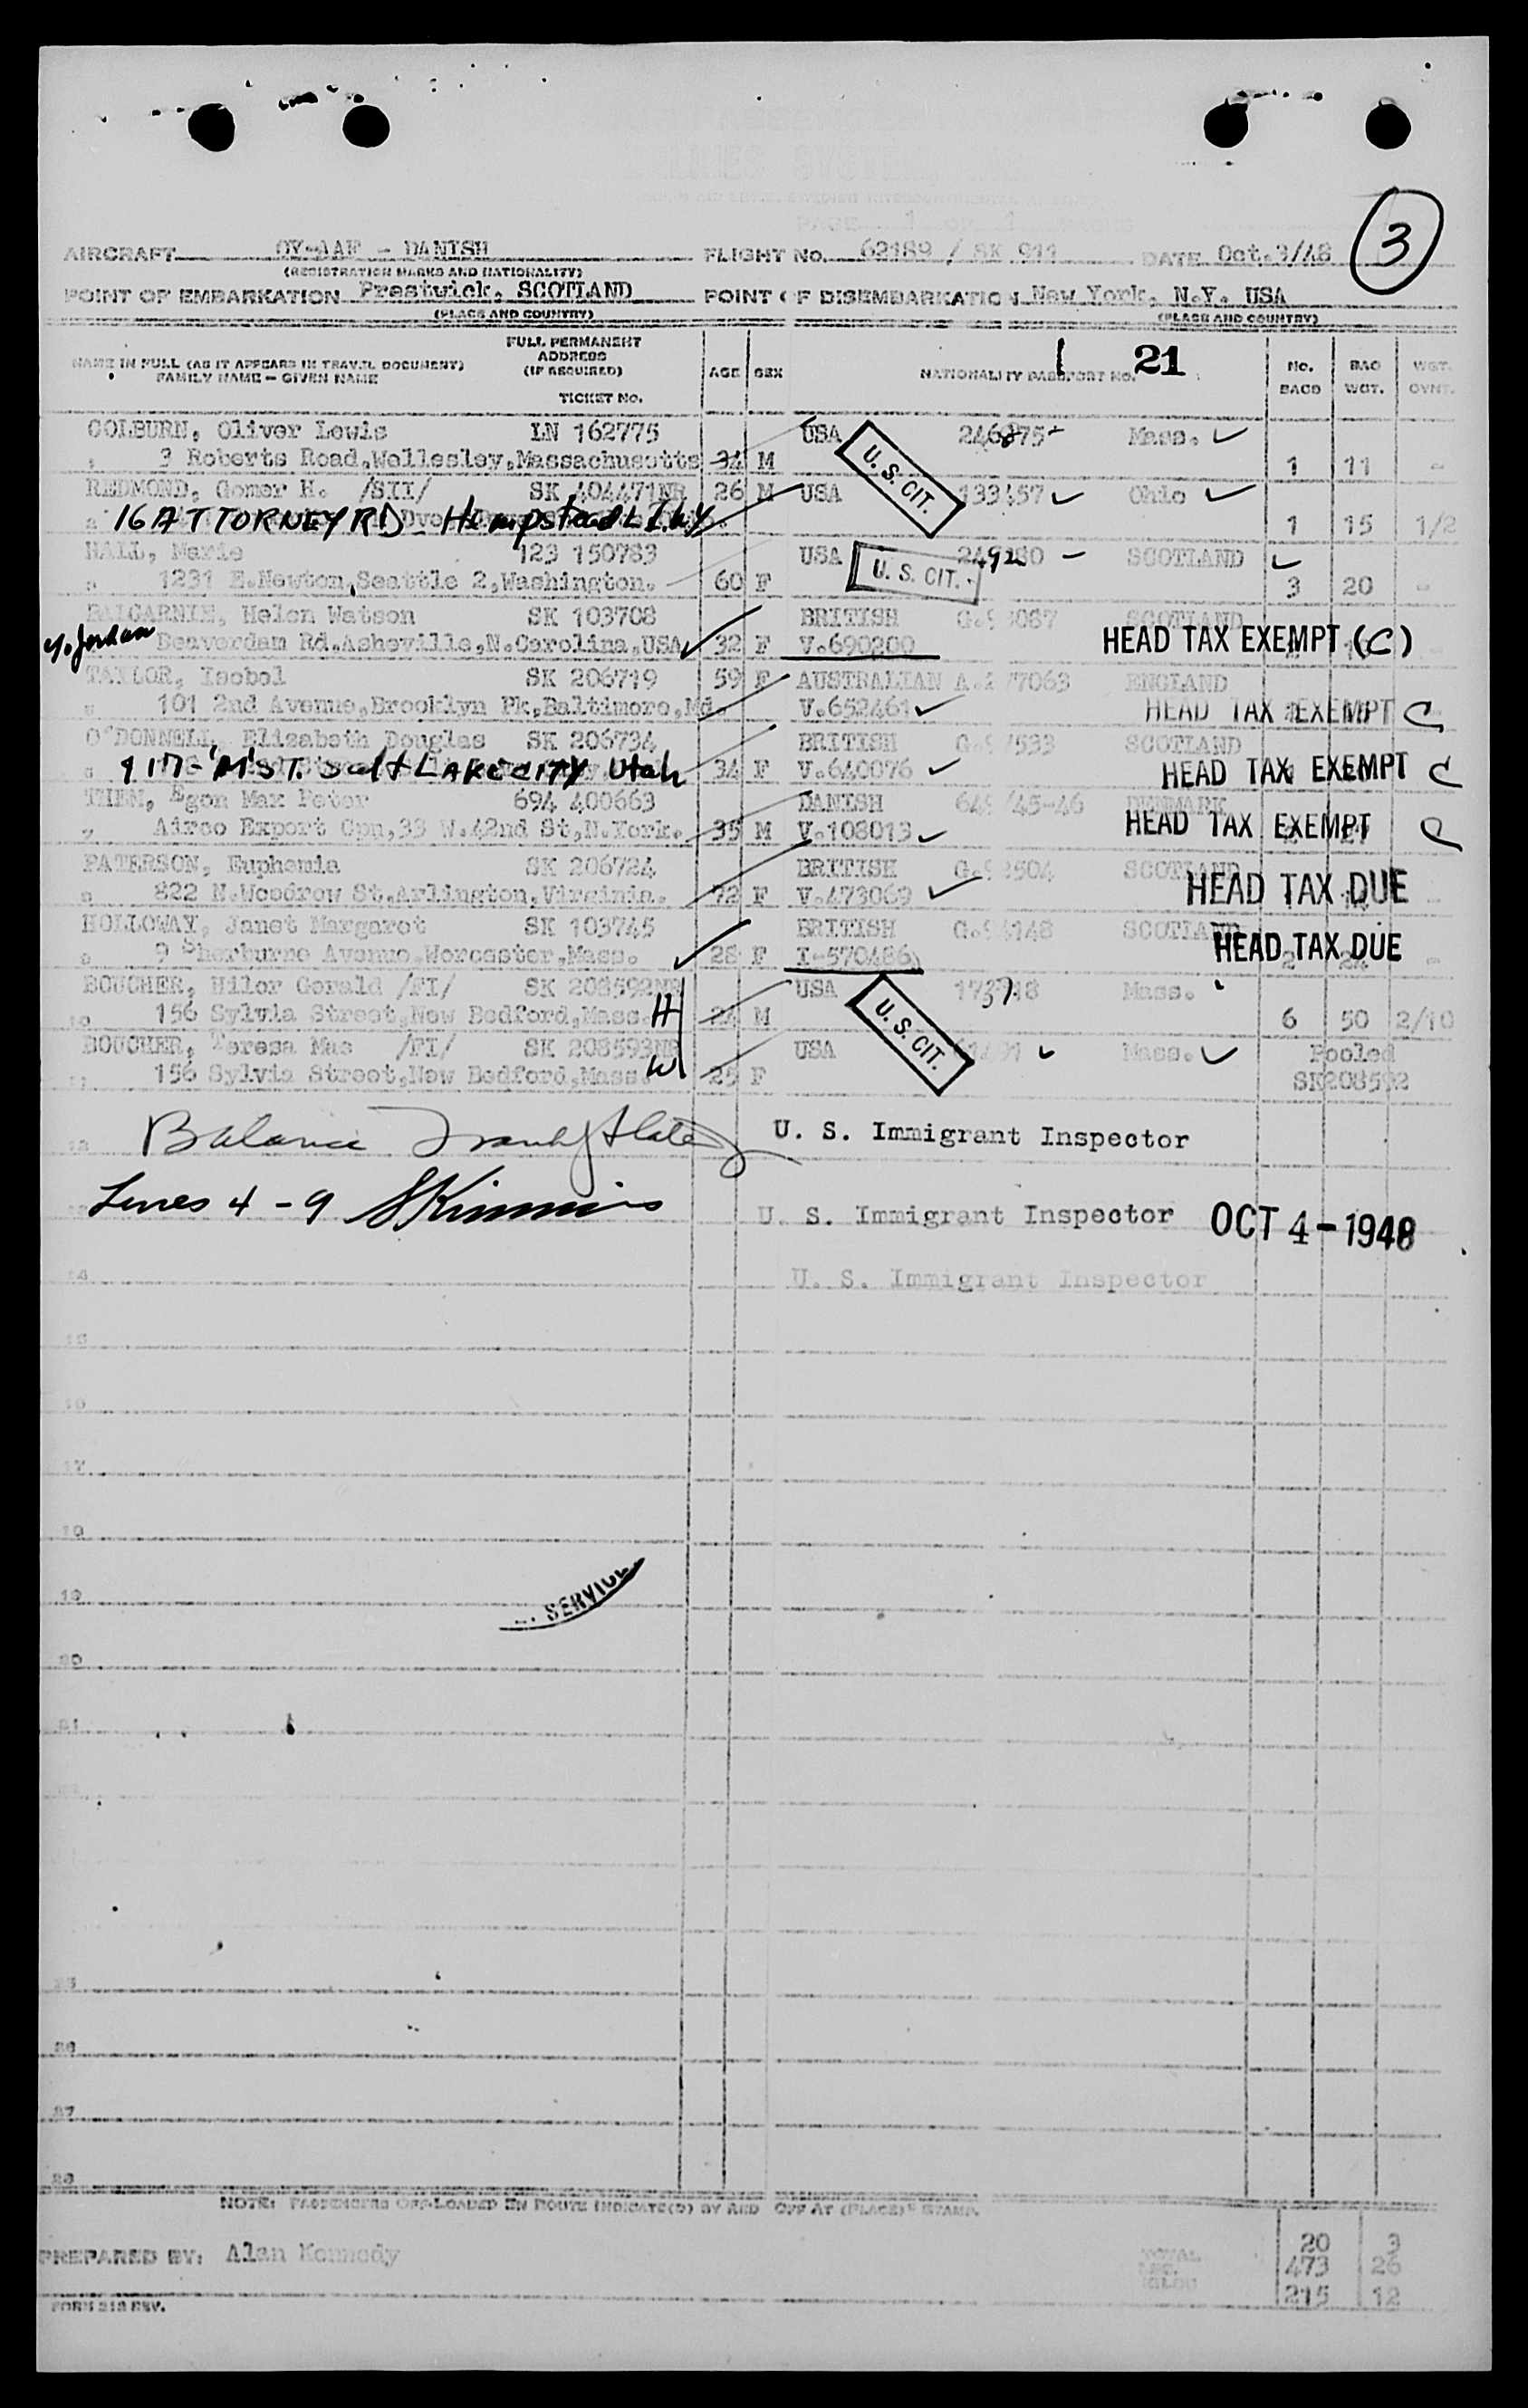 PAGE 1 OF 1
3
AIRCRAFT OY-AAF - DANISH FLIGHT NO. 62189 / SK 911 DATE Oct.3/48
(REGISTRATION MARKS AND NATIONALITY)
POINT OF EMBARKATION Prestwick, SCOTLAND POINT OF DISEMBARKATION New York, N.Y. USA
(PLACE AND COUNTRY) (PLACE AND COUNTRY)
NAME IN FULL (AS IT APPEARS IN TRAVEL DOCUMENT)
FAMILY NAME - GIVEN NAME
FULL PERMANENT
ADDRESS
(IF REQUIRED)
TICKET NO.
AGE SEX NATIONALITY PASSPORT NO. 21 No. BAGS BAG WGT. WGT. OVNT.
COLBURN, Oliver Lewis LN 162775 USA 246875 Mass.
3 Roberts Road,Wellesley,Massachusetts 34 M U. S. CIT. 1 11 -
REDMOND, Gomer H. /SII/ SK 404471NR 26 M USA 133457 Ohio
16 ATTORNEY RD - Hempstead L I. N.Y. 1 15 1/2
HALL, Marie 123 150783 USA SCOTLAND
1231 E.Newton,Seattle 2,Washington. 60 F U. S. CIT. 3 20 -
BALGARNIE, Helen Watson SK 103708 BRITISH SCOTLAND
Beaverdam Rd.Asheville,N.Carolina,USA 32 F V.690200 HEAD TAX EXEMPT (C)
TAYLOR, Isobel SK 206719 59 F AUSTRALIAN ENGLAND
101 2nd Avenue,Brooklyn Pk,Baltimore,Md. V.652461 HEAD TAX EXEMPT C
O'DONNELL, Elizabeth Douglas SK 206734 BRITISH SCOTLAND
917-'M' ST. Salt LAKE CITY Utah 34 F V.640076 HEAD TAX EXEMPT C
THEN, Egon Max Peter 694 400663 DANISH 45-46 DENMARK
7 Airco Export Cpn,33 W.42nd St,N.York. 35 M V.108013 HEAD TAX EXEMPT C
PATERSON, Euphemia SK 206724 BRITISH SCOTLAND
822 N.Woodrow St.Arlington,Virginia. 72 F V.473069 HEAD TAX DUE
HOLLOWAY, Janet Margaret SK 103745 BRITISH SCOTLAND
9 Sherburne Avenue.Worcester,Mass. 28 F I-570486 HEAD TAX DUE
BOUCHER, Hilor Gerald /FI/ SK 208592NR USA Mass.
10 156 Sylvia Street,New Bedford,Mass. H 24 M U. S. CIT. 6 50 2/10
BOUCHER, Teresa Mae /FI/ SK 208593NR USA Mass. Pooled
11 156 Sylvia Street,New Bedford,Mass. W 25 F SK208592
12 Balance U. S. Immigrant Inspector
13 Lines 4 - 9 U. S. Immigrant Inspector OCT 4 - 1948
14 U. S. Immigrant Inspector
15
16
17
18
19
SERVICE
20
21
25
26
27
28
NOTE: PASSENGERS OFF-LOADED EN ROUTE INDICATE(D) BY AND OFF AT (PLACE)" STAMP.
PREPARED BY: Alan Kennedy TOTAL 20 3
473 26
KILOS 215 12
FORM 213 REV.